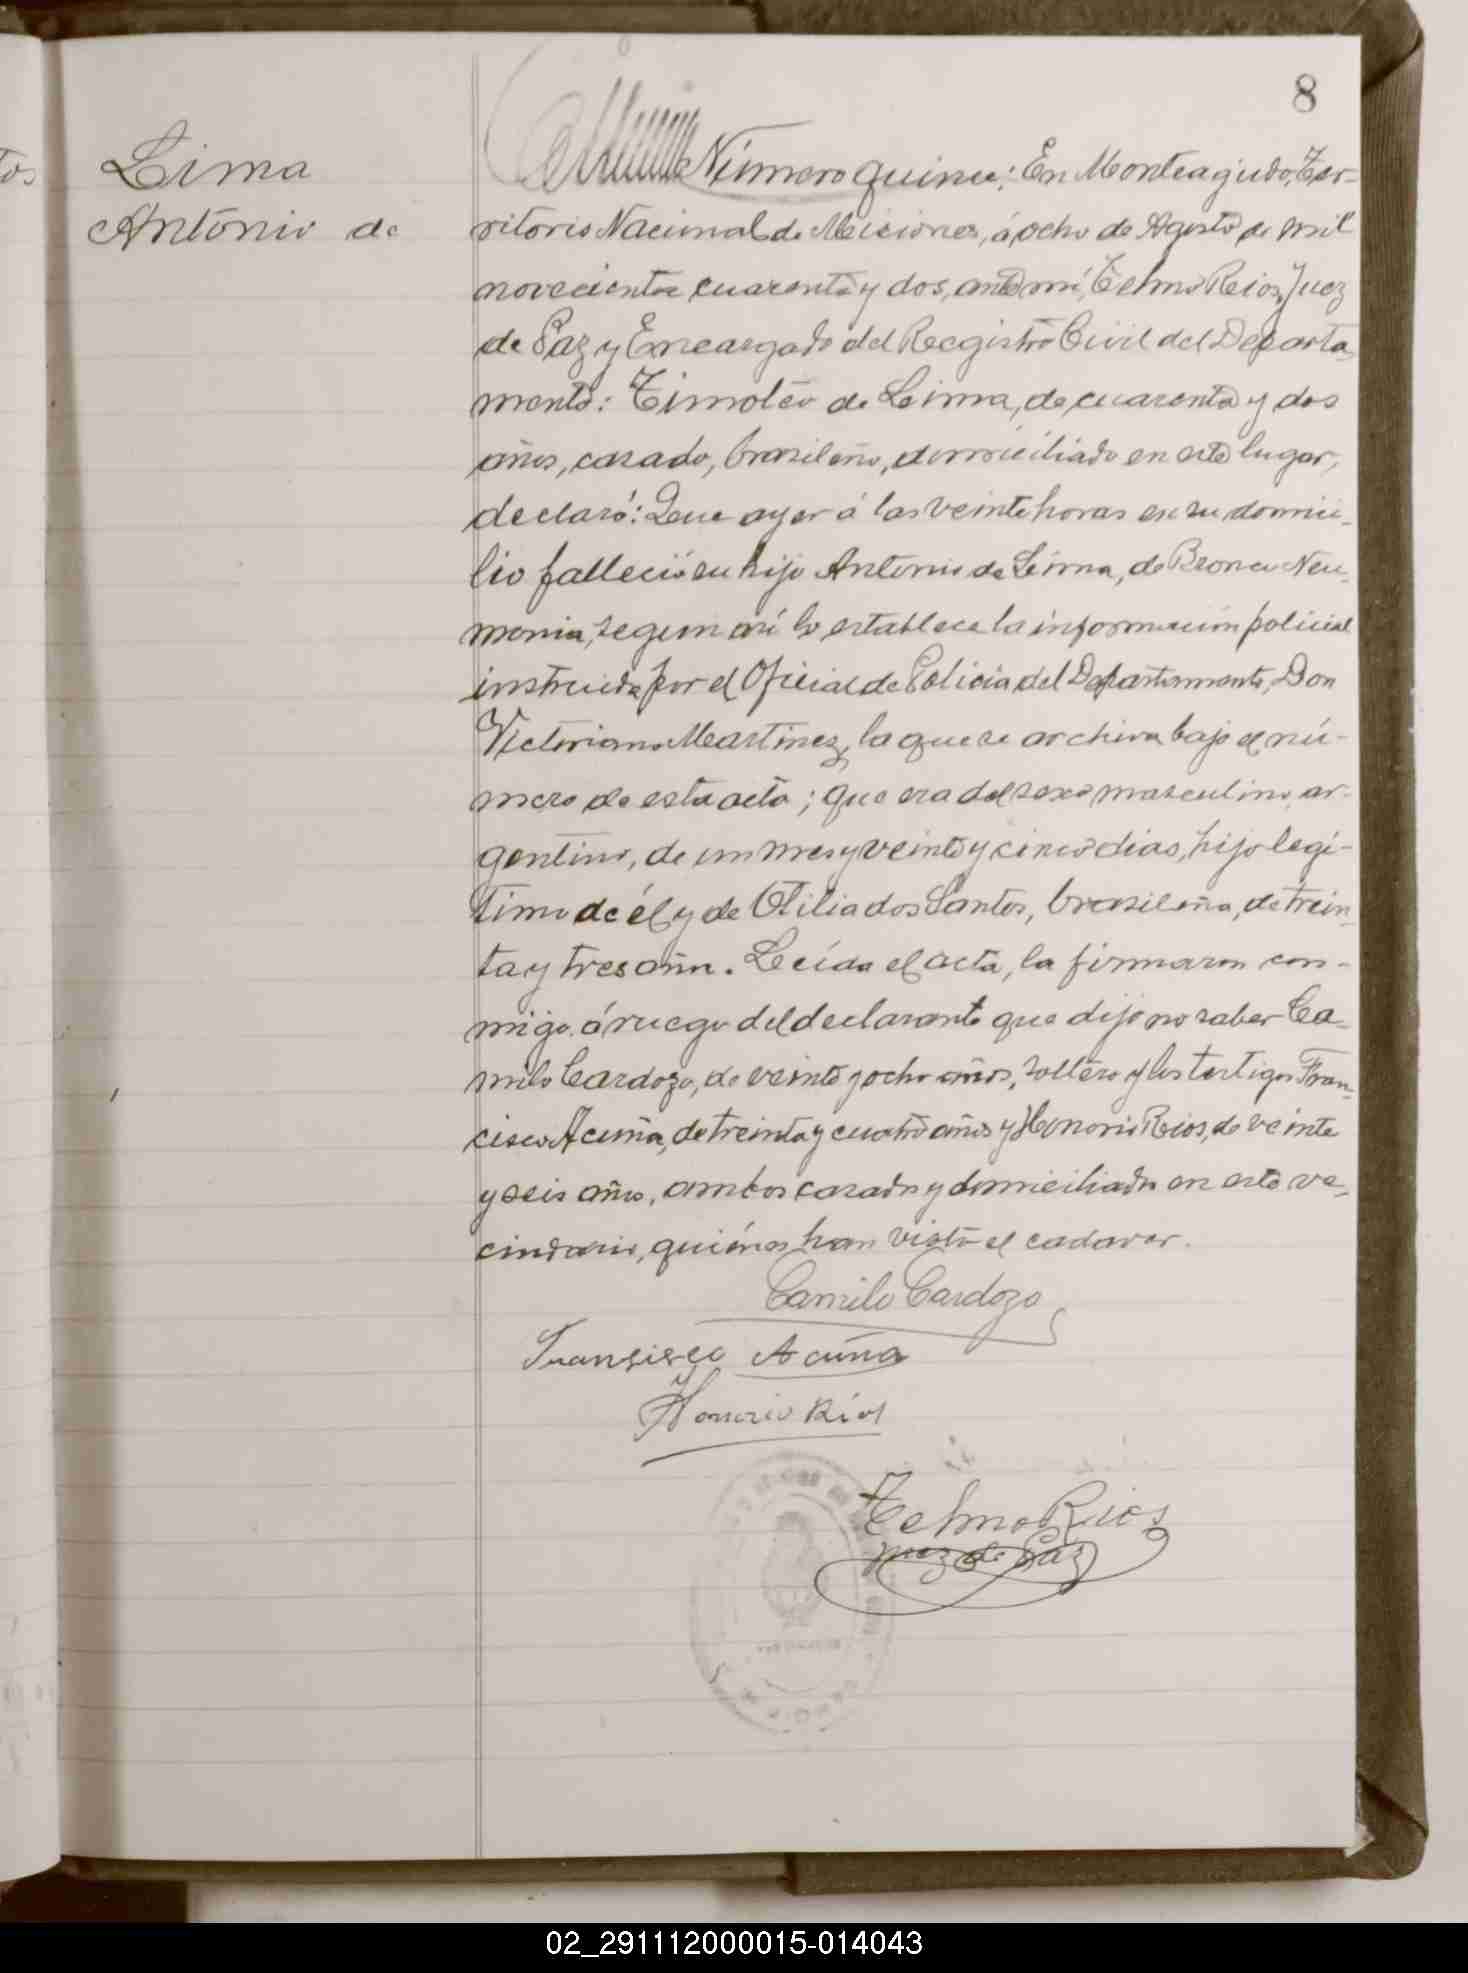 8
Lima
Antonio de
Número quince: En Monteagudo, Ter-
ritorio Nacional de Misiones, á ocho de Agosto de mil
novecientos cuarenta y dos, ante mí, Telmo Rios, Juez
de Paz y Encargado del Registro Civil del Departa-
mento: Timoteo de Lima, de cuarenta y dos
años, casado, brasileño, domiciliado en este lugar,
declaró: Que ayer á las veinte horas en su domici-
lio falleció su hijo Antonio de Lima, de Bronco Neu-
monia, segun así lo establece la información policial
instruida por el Oficial de Policia del Departamento, Don
Victoriano Martinez, la que se archiva bajo el nú-
mero de esta acta; que era del sexo masculino, ar-
gentino, de un mes y veinte y cinco dias, hijo legí-
timo de él y de Otilia dos Santos, brasileña, de trein-
ta y tres años. Leída el acta, la firmaron con-
migo á ruego del declarante que dijo no saber Ca-
milo Cardozo, de veinte y ocho años, soltero y los testigos Fran-
cisco Acuña, de treinta y cuatro años y Honorio Rios, de veinte
y seis años, ambos casados y domiciliados en este ve-
cindario, quiénes han visto el cadaver.
Camilo Cardozo
Fransisco Acuña
Honorio Ríos
Telmo Rios
Juez de Paz
02_291112000015-014043